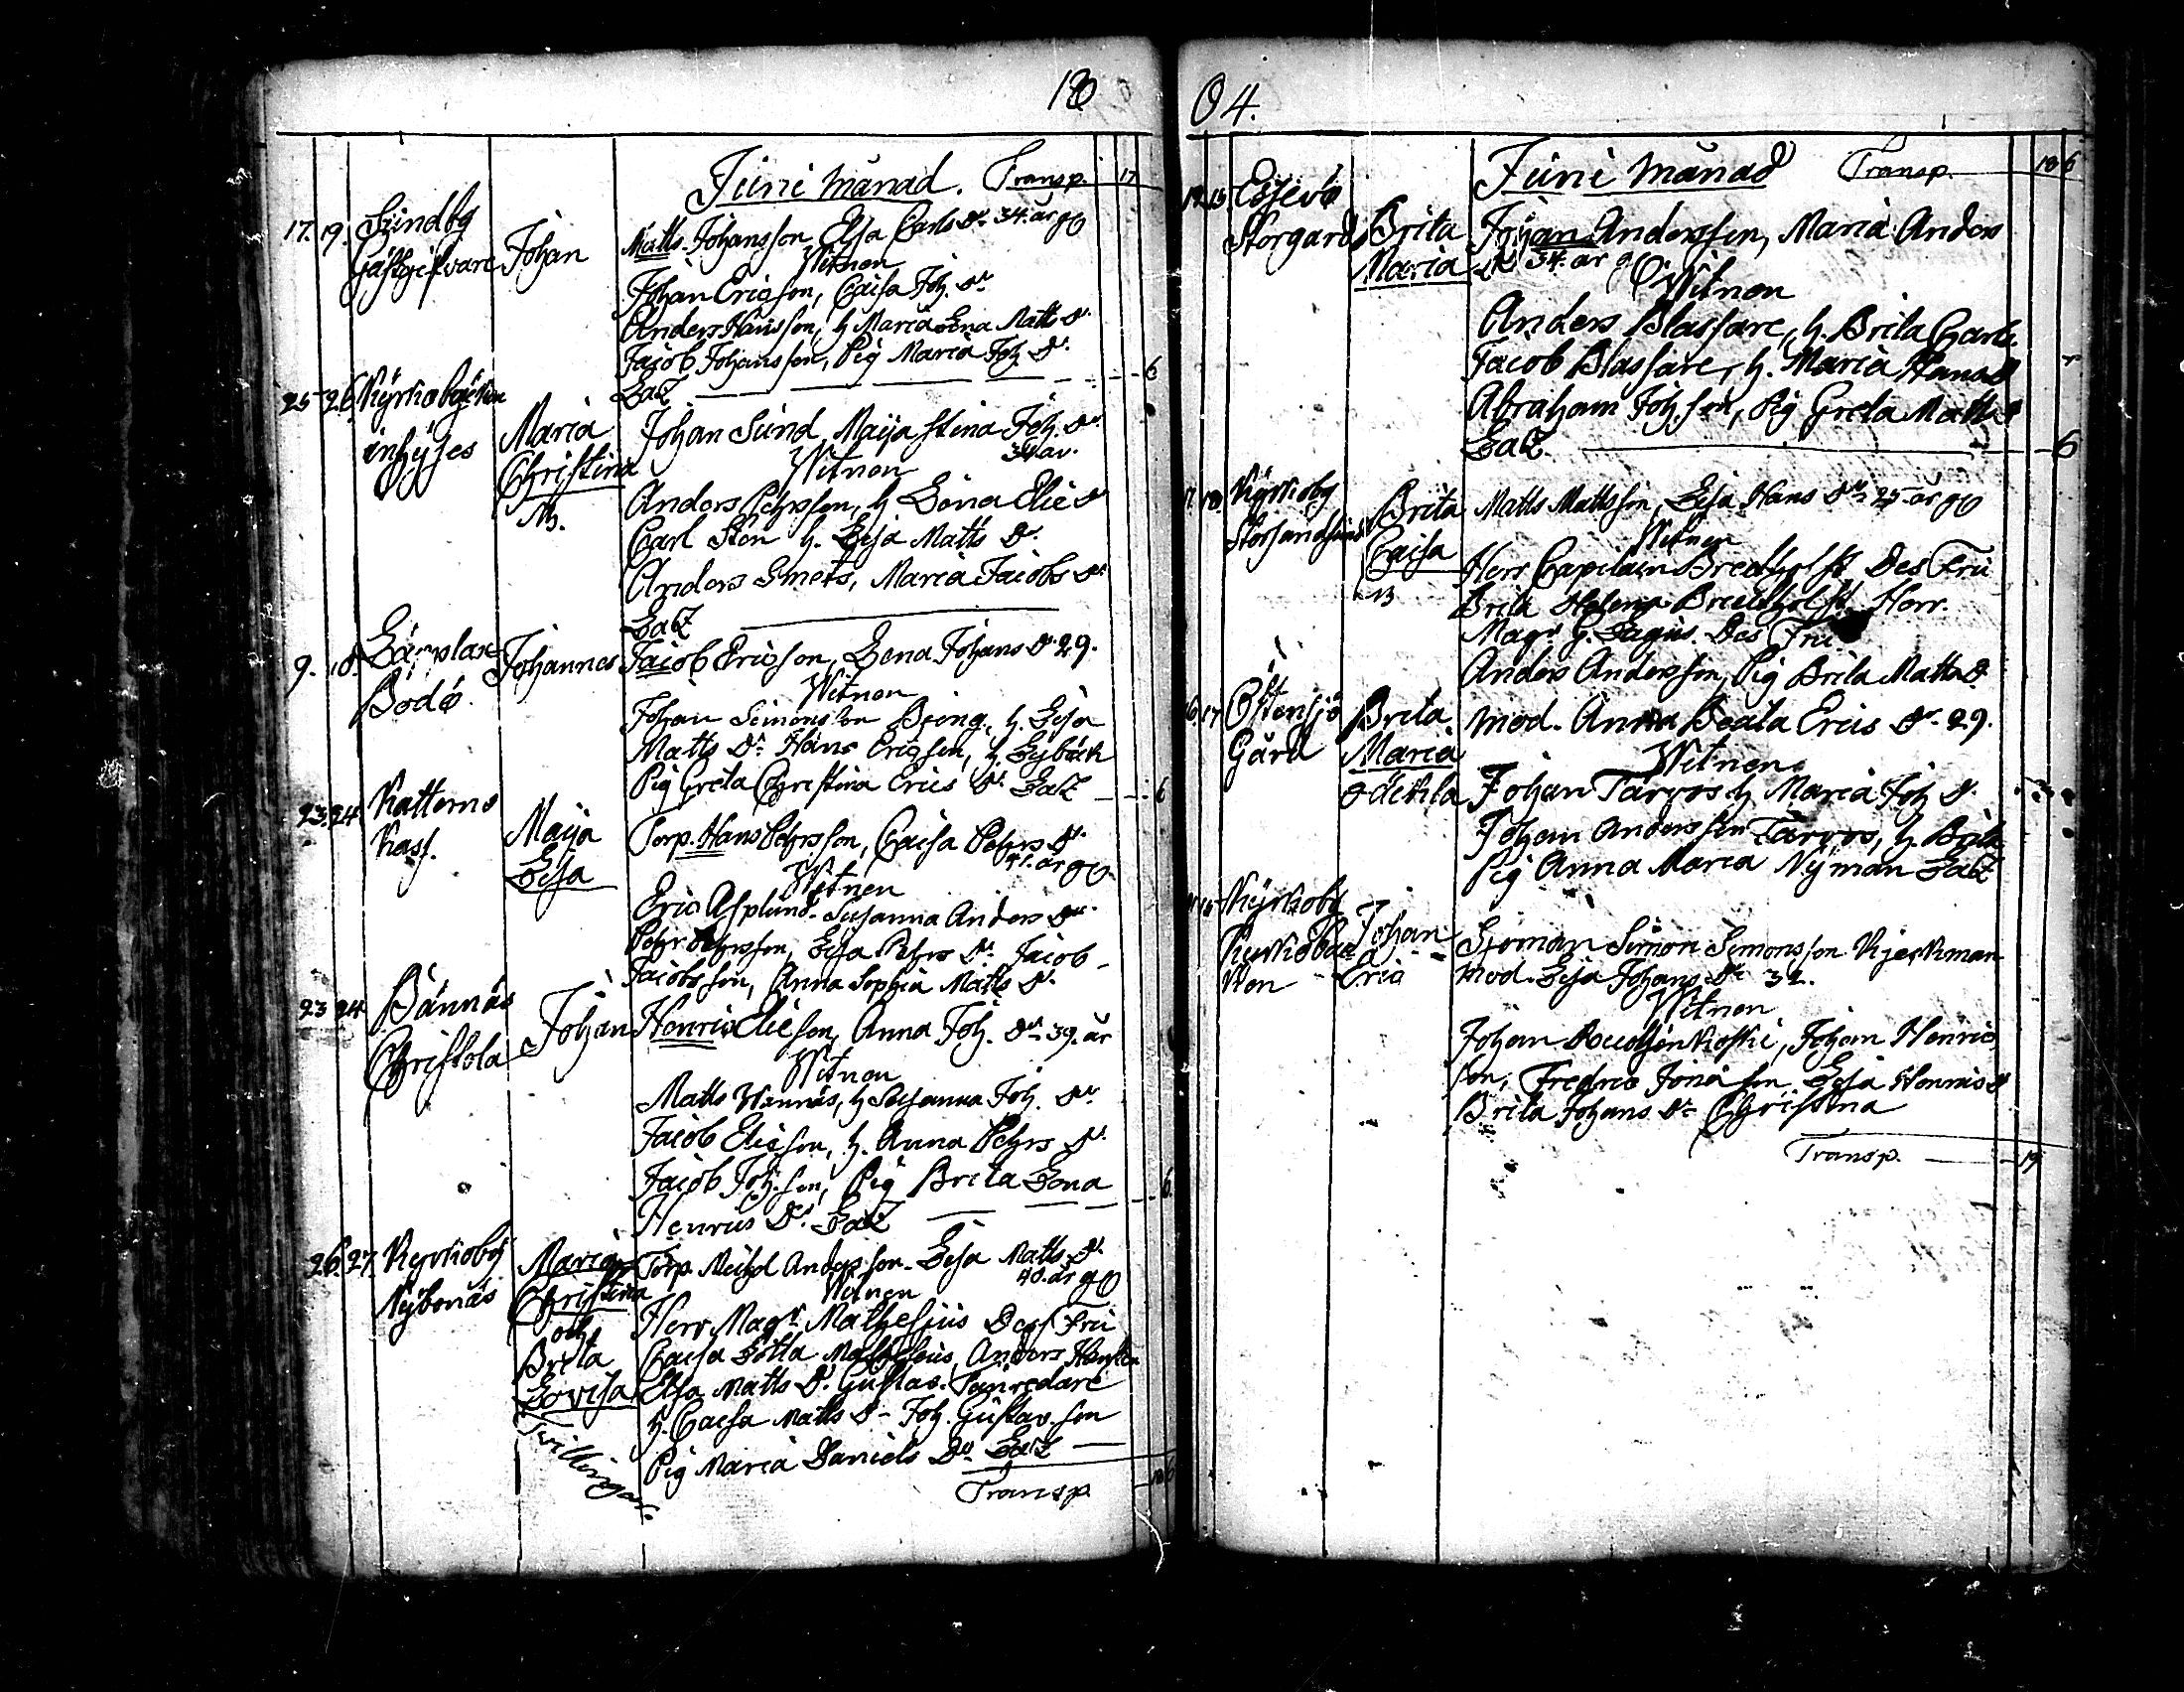 18
Juni Månad. Transp. 17
17. 19. Sundby Gästgifvare Johan Matts Johansson, Elsa Carls Dr. 34. år gg
Witnen
Johan Ericsson, Caisa Joh. Dr
Anders Hansson, h Maria Lena Matts Dr.
Jacob Johansson, Pig Maria Joh. Dr.
Lax 6
25 26 Kyrkobacken inhyses Maria Christina Johan Sund Maija Stina Joh. Dr.
Witnen
Anders Pehrsson, h Lena Elie Dr
Carl Sten h. Lisa Matts Dr.
Anders Smeds, Maria Jacobs Dr
Lax
9. 10. Bodö Johannes Jacob Ericsson, Lena Johans Dr 29.
Witnen
Johan Simonsson Breng, h. Lisa
Matts Dr Hans Ericsson, h. Lybäck
Pig Greta Christina Erics Dr. Lax 6
23. 24. Katterno Kass. Maija Lisa Torp. Hans Pehrsson, Caisa Pehrs Dr.
41. år gg
Witnen
Eric Asplund Susanna Anders Dr
Pehr Pehrsson, Lisa Pehrs Dr. Jacob
Jacobsson, Anna Sophia Matts Dr.
23 24 Bännäs Christola Johan Henric Elieson, Anna Joh. Dr 39. år
Witnen
Matts Wännäs, h Susanna Joh. Dr
Jacob Elieson, h. Anna Pehrs Dr.
Jacob Joh. son, Pig Brita Lena
Henrics Dr. Lax 6
26. 27. Kyrkoby Nybonäs Maria Christina Torp. Andersson Lisa Matts Dr.
40. år gg
Witnen
och Herr Magr. Mathesius Dess Fru
Brita Caisa Lotta Mathesius, Anders
Lovisa Elsa Matts Dr. Gustav
h. Caisa Matts Dr Joh. Gustavson
Twillingar. Pig Maria Daniels Dr. Lax
Transp. 18 6
04.
Juni Månad Transp. 18 6
12 13 Essevö Storgård Brita Johan Andersson, Maria Anders
Maria Dr 34. år
Witnen
Anders Blassare, h. Brita Carls
Jacob Blassare, h. Maria Hans Dr
Abraham Joh. son, Pig Greta Matts Dr
Lax 6
17. 18. Kyrkoby Brita Caisa Matts Mattsson, Lisa Hans Dr 25 år gg
Witnen
Herr Capitain Bredholst Des Fru
Brita Helena Bredholst, Herr.
Magr G. Lagus. Des Fru
Anders Andersson, Pig Brita Matts Dr
16 17 Östensjö Gård Brita Maria oäckta mod. Anna Beata Erics Dr. 29.
Witnen
Johan Tarvos h Maria Joh Dr.
Johan Andersson Tarvos, h. Brita
Pig Anna Maria Nyman Lax
Kyrkoby Kyrkobacken Johan Eric Sjöman Simon Simonsson
mod. Lisa Johans Dr 32.
Witnen
Johan, Johan Henric
son, Fredric Jonason Lisa Henrics Dr
Brita Johans Dr Christina
Transp. 19